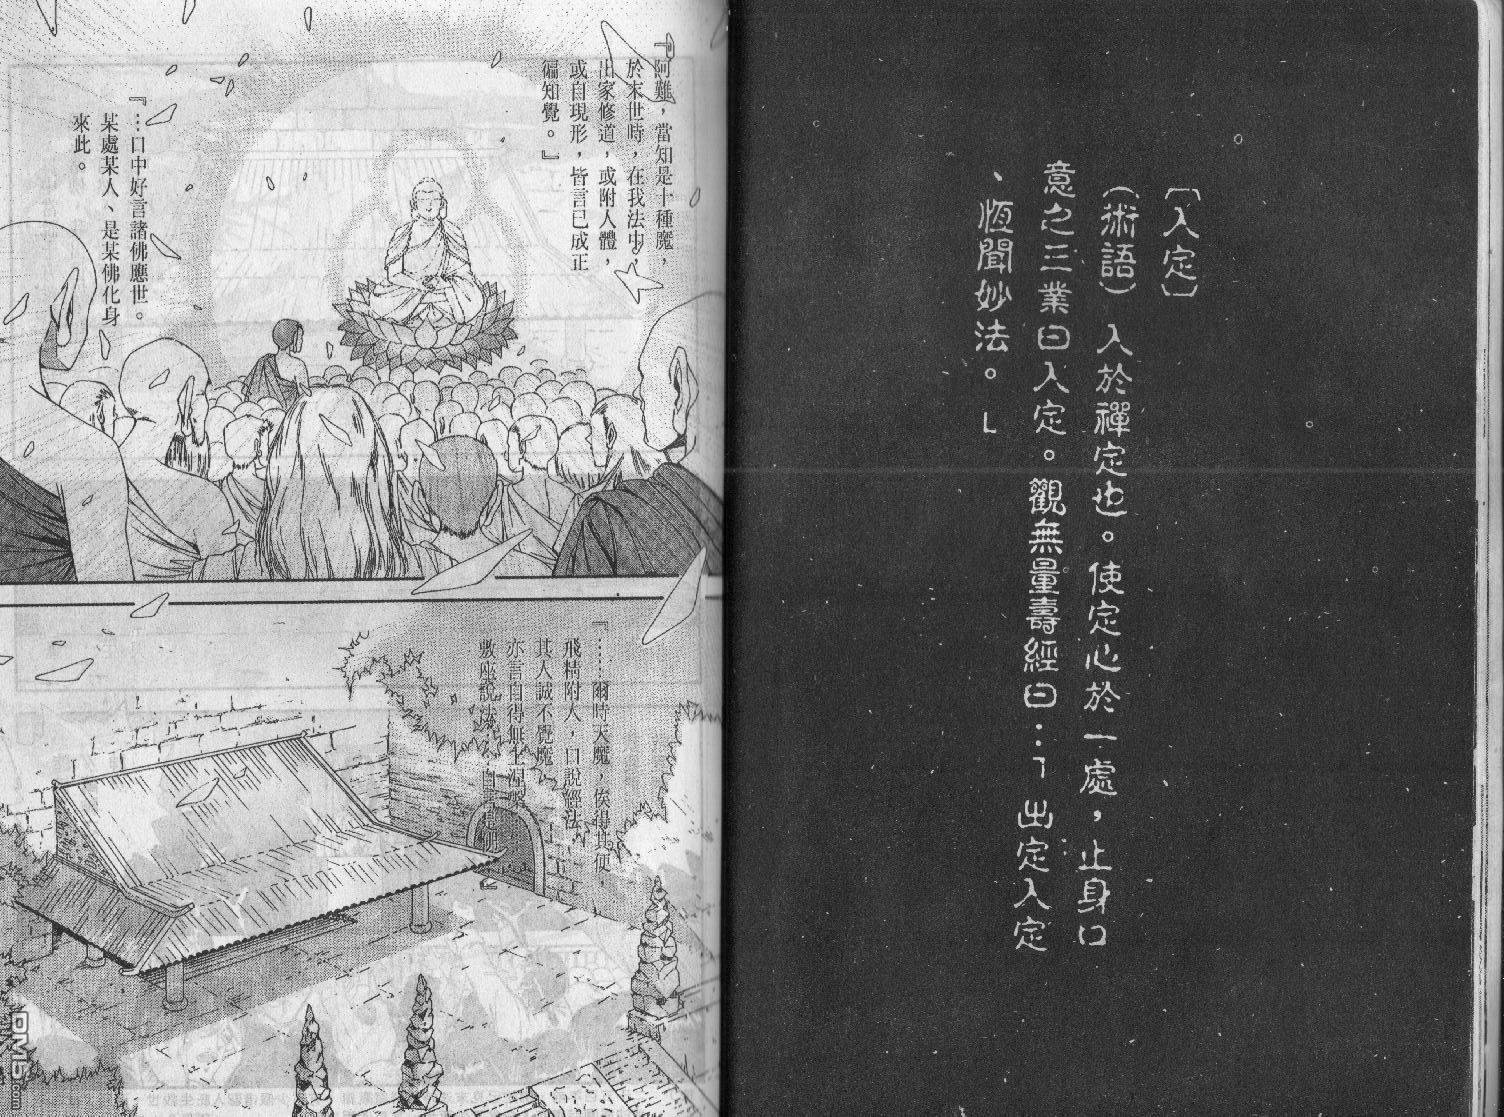 〔入定〕
（術語）入於禪定也。使定心於一處，止身口
意之三業曰入定。觀無量壽經曰：「出定入定
、恆聞妙法。」
『阿難，當知是十種魔，
於末世時，在我法中，
出家修道，或附人體，
或自現形，皆言已成正
徧知覺。』
『…口中好言諸佛應世。
某處某人、是某佛化身
來此。
『……爾時天魔，俟得其便，
飛精附人，口說經法，
其人誠不覺魔
亦言自得無上涅槃
敷座說法
DM5.com